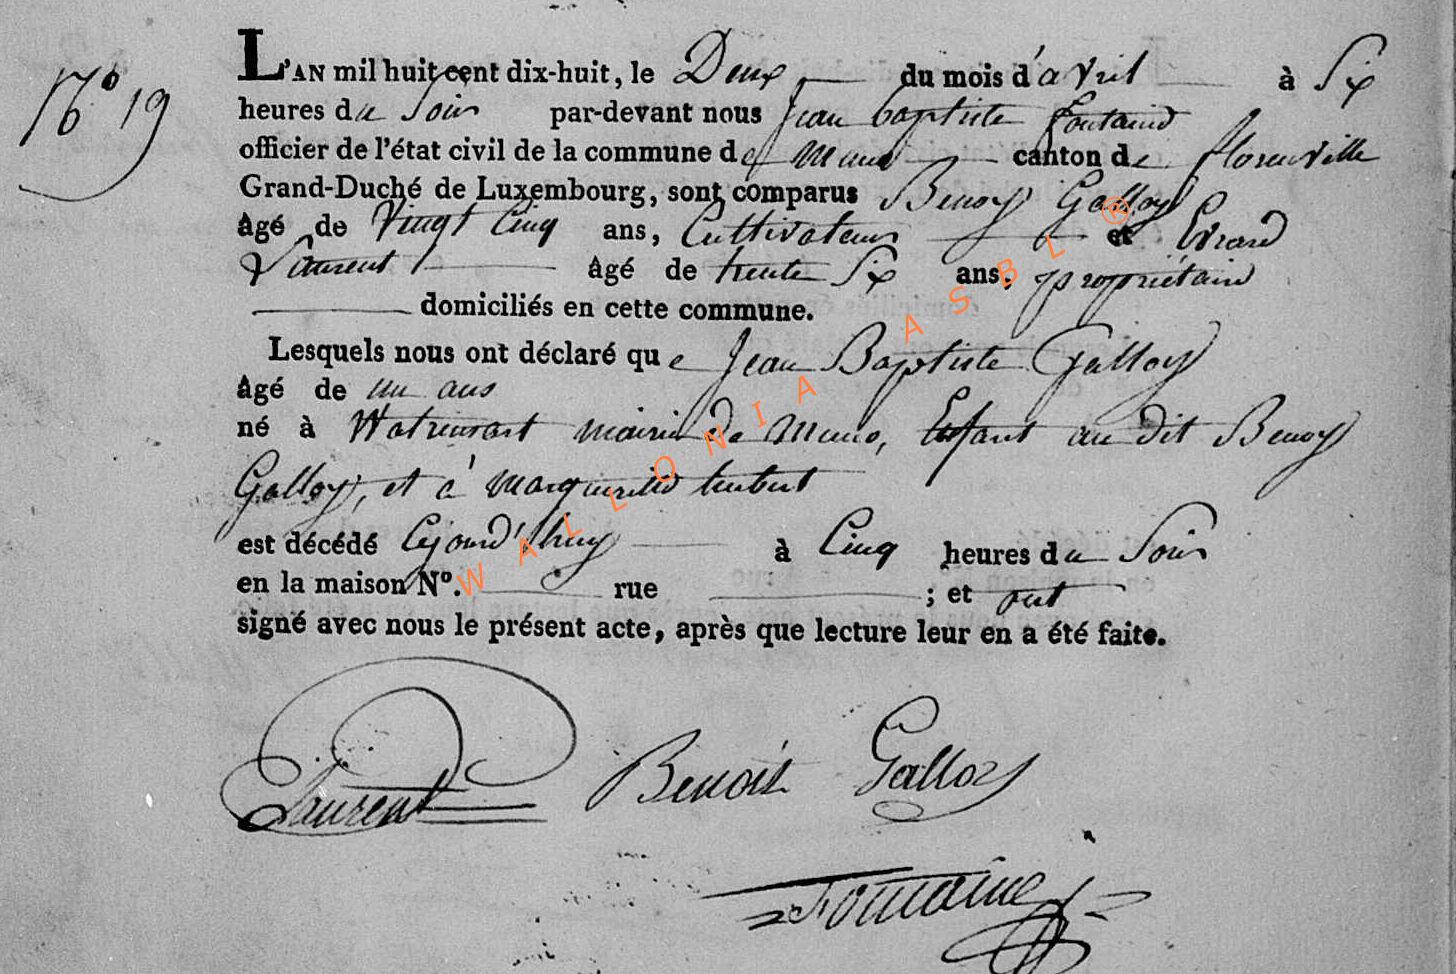 N° 19
L'AN mil huit cent dix-huit, le Deux du mois d'avril à Six
heures du Soir par-devant nous Jean baptiste fontaine
officier de l'état civil de la commune de Muno canton de florenville
Grand-Duché de Luxembourg, sont comparus Benoy Galloy
âgé de Vingt Cinq ans, Cultivateur et Evrard
Laurent âgé de trente Six ans, propriétaire
domiciliés en cette commune.
Lesquels nous ont déclaré que Jean Baptiste Galloy
âgé de un ans
né à Watrinsart mairie de Muno, Enfant au dit Benoy
Galloy, et à margueritte hubert
est décédé Cejourd'huy à Cinq heures du Soir
en la maison N°. rue ; et ont
signé avec nous le présent acte, après que lecture leur en a été faite.
Laurent Benoit Galloy
Fontaine
WALLONIA ASBL ®